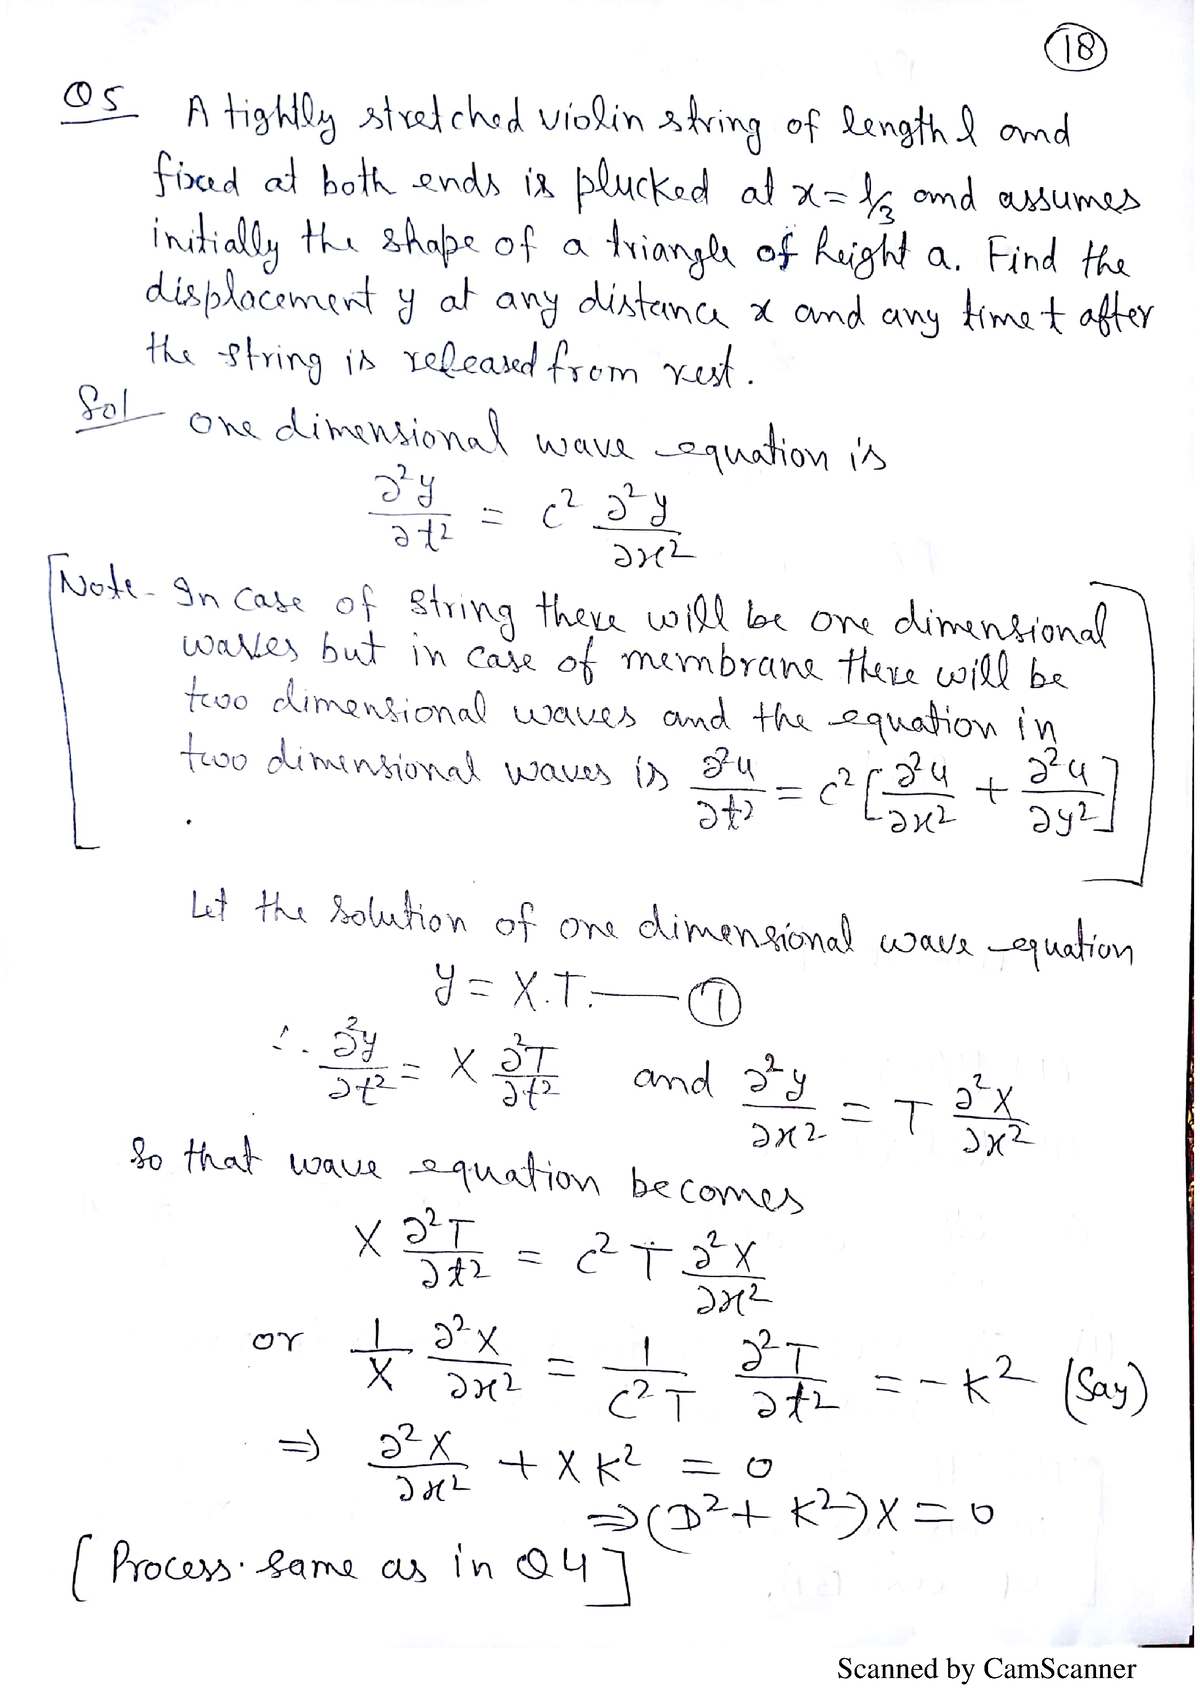 18
Q5 A tightly stretched violin string of length l and
fixed at both ends is plucked at x = l/3 and assumes
initially the shape of a triangle of height a. Find the
displacement y at any distance x and any time t after
the string is released from rest.
Sol one dimensional wave equation is
∂²y/∂t² = c² ∂²y/∂x²
[Note - In case of string there will be one dimensional
waves but in case of membrane there will be
two dimensional waves and the equation in
two dimensional waves is ∂²u/∂t² = c² [∂²u/∂x² + ∂²u/∂y²]]
Let the solution of one dimensional wave equation
y = X.T. — ①
∴ ∂²y/∂t² = X ∂²T/∂t² and ∂²y/∂x² = T ∂²X/∂x²
So that wave equation becomes
X ∂²T/∂t² = c² T ∂²X/∂x²
or 1/X ∂²X/∂x² = 1/(c²T) ∂²T/∂t² = -K² (Say)
⇒ ∂²X/∂x² + XK² = 0
⇒ (D² + K²)X = 0
[Process same as in Q4]
Scanned by CamScanner